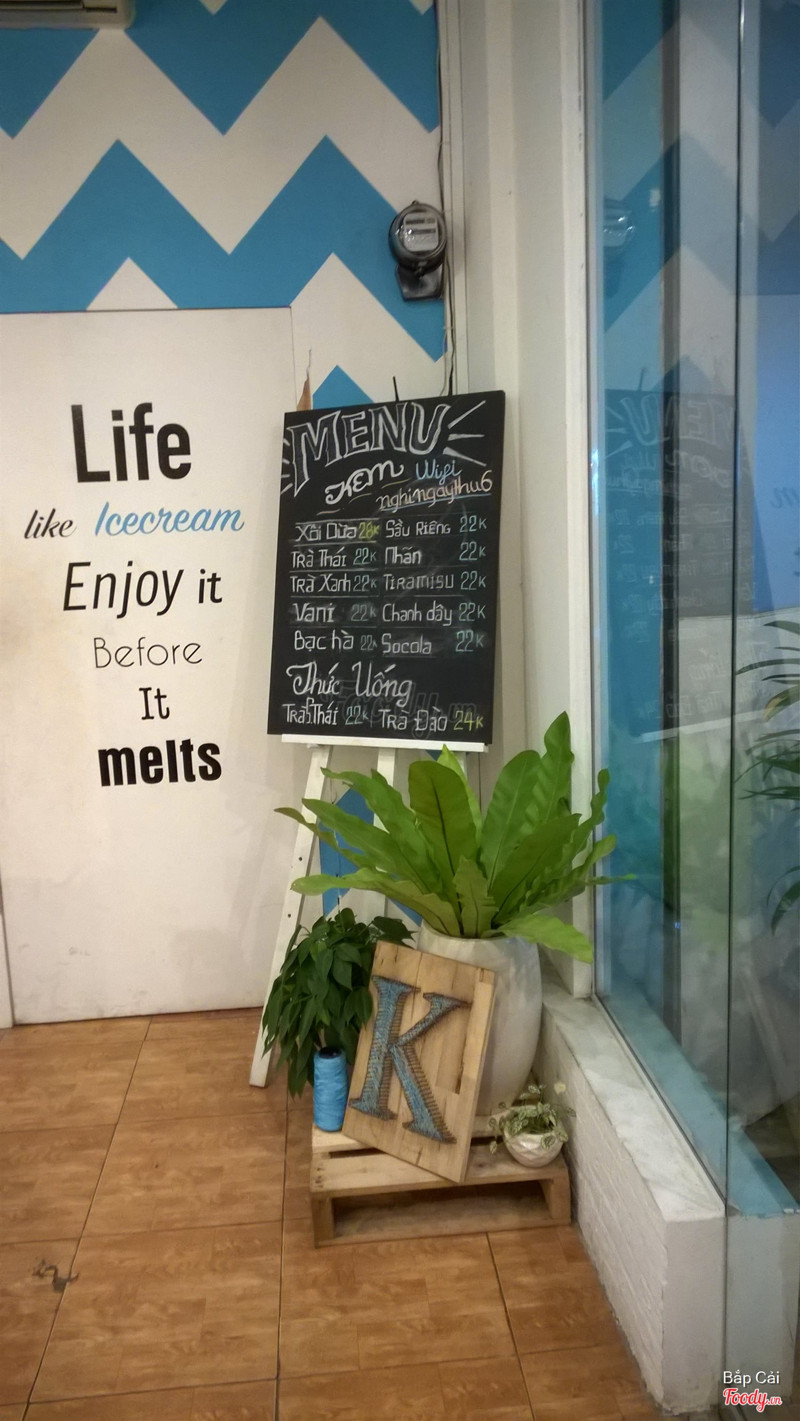 Life
like Icecream
Enjoy it
Before
It
melts
MENU
KEM Wifi
nghingaythu6
Xôi Dừa 28K Sầu Riêng 22K
Trà Thái 22K Nhãn 22K
Trà Xanh 22K Tiramisu 22K
Vani 22K Chanh dây 22K
Bạc hà 22K Socola 22K
Thức Uống
Trà Thái 22K Trà Đào 24K
K
Bắp Cải
Foody.vn